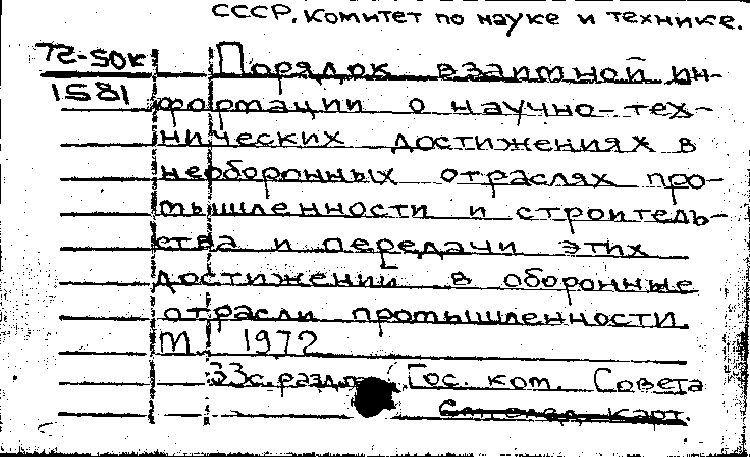 СССР. Комитет по науке и технике.
72-50к Порядок взаимной ин-
1581 формации о научно-тех-
нических достижениях в
необоронных отраслях про-
мышленности и строитель-
ства и передачи этих
достижений в оборонные
отрасли промышленности.
М 1972
33с. раздел Гос. ком. Совета
карт.